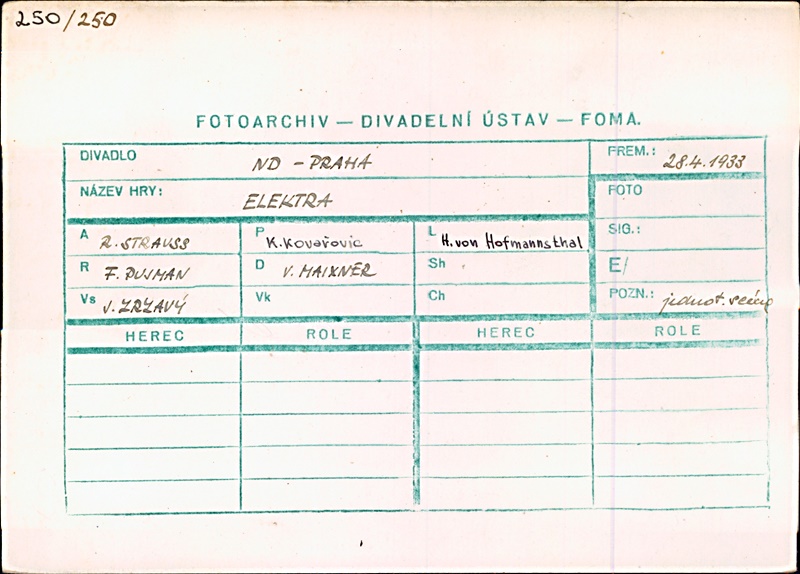 250/250
FOTOARCHIV — DIVADELNÍ ÚSTAV — FOMA.
DIVADLO ND - PRAHA PREM.: 28.4.1933
NÁZEV HRY: ELEKTRA FOTO
A R. STRAUSS P K. Kovařovic L H. von Hofmannsthal SIG.:
R F. PUJMAN D V. MAIXNER Sh E/
Vs J. ZRZAVÝ Vk Ch POZN.: jednot.
HEREC ROLE HEREC ROLE